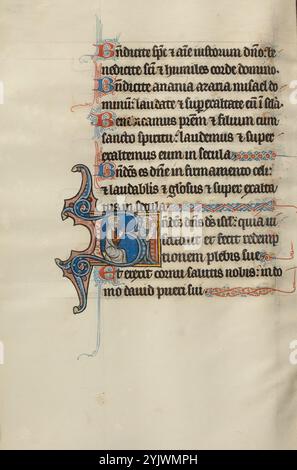 Bndicite spc et aie iustorum dno: be
nedicite sci et humiles corde domino.
Bndicite anania azaria misael do
minum: laudate et supexaltate eum i sela.
Benedicamus prem et filium cum
sancto spiritu: laudemus et super
exaltemus eum in secula.
Bndcs es dne in firmamento celi:
et laudabilis et gliosus et super exalta
tus in secula.
dns ds isrl: quia ui
sitauit et fecit redemp
tionem plebis sue
Et erexit cornu salutis nobis: in do
mo dauid pueri sui
alamy
Image ID: 2YJWMPH
www.alamy.com